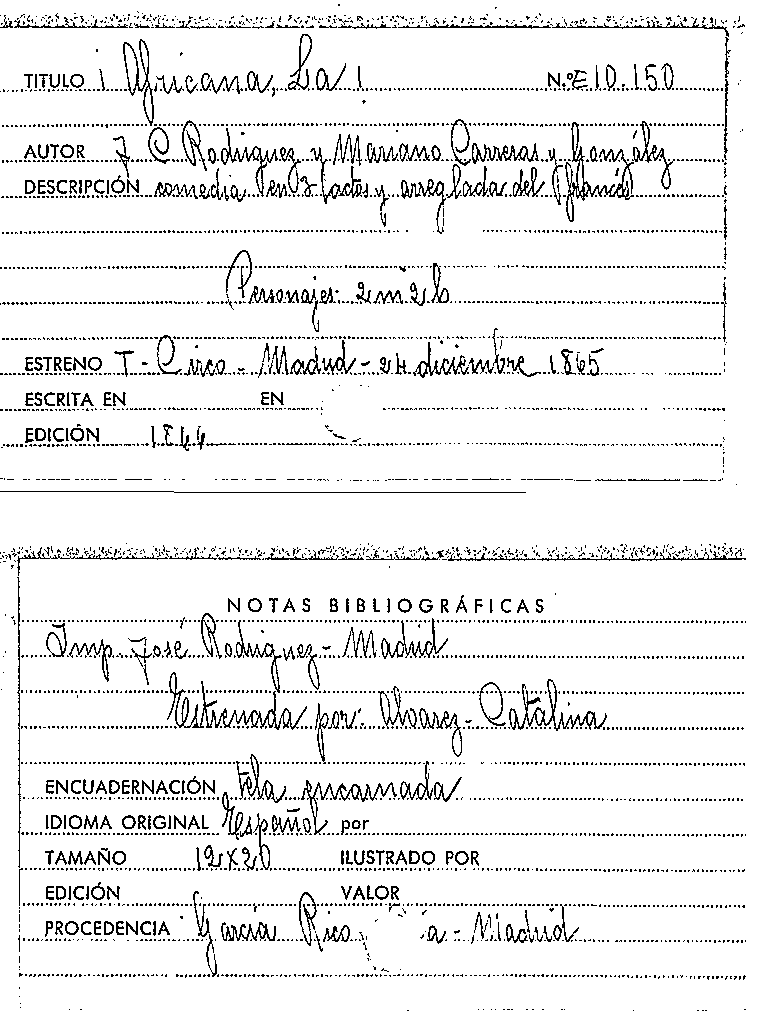 TITULO ¡ Africana, La ! N.º E 10.150
AUTOR J C Rodriguez y Mariano Carreras y González
DESCRIPCIÓN comedia en 3 actos y arreglada del francés
Personajes: 2 m 2 h
ESTRENO T - Circo - Madrid - 24 diciembre 1865
ESCRITA EN EN
EDICIÓN 1866
NOTAS BIBLIOGRÁFICAS
Imp. José Rodriguez - Madrid
Estrenada por: Alvarez - Catalina
ENCUADERNACIÓN tela encarnada
IDIOMA ORIGINAL Español por
TAMAÑO 12x20 ILUSTRADO POR
EDICIÓN VALOR
PROCEDENCIA García Rico - Madrid